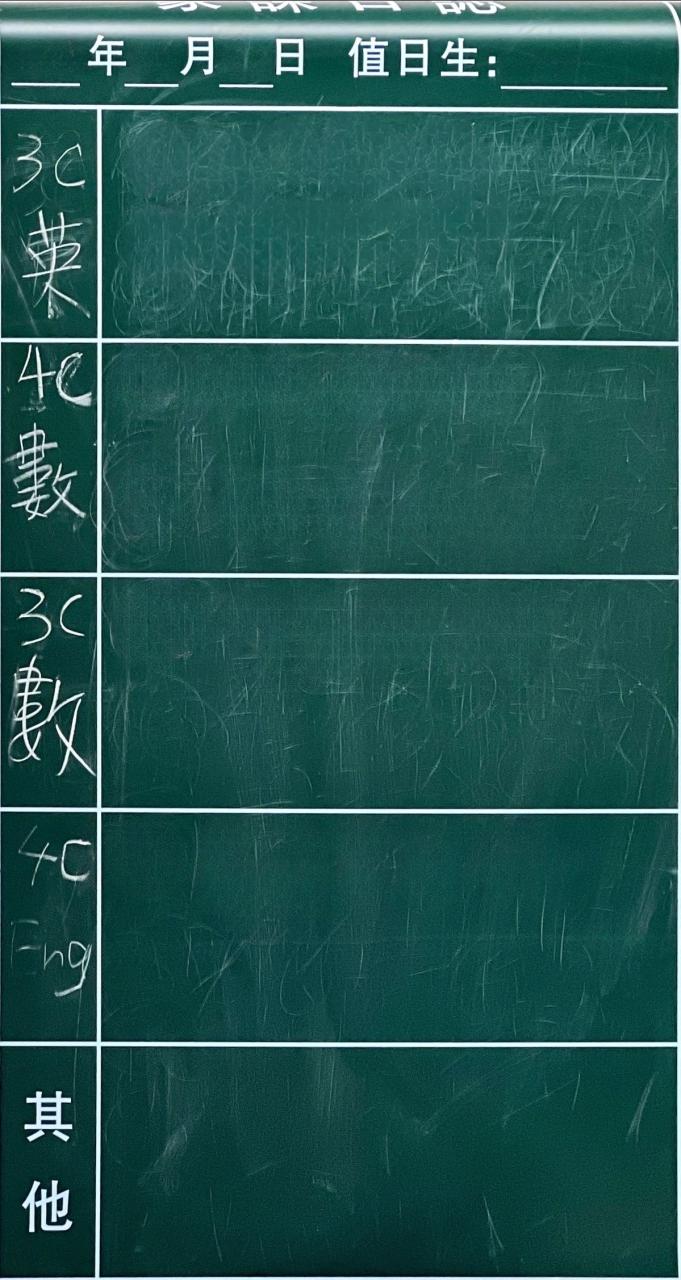 家課日誌
___年___月___日 值日生:__________
3C
英
4C
數
3C
數
4C
Eng
其
他